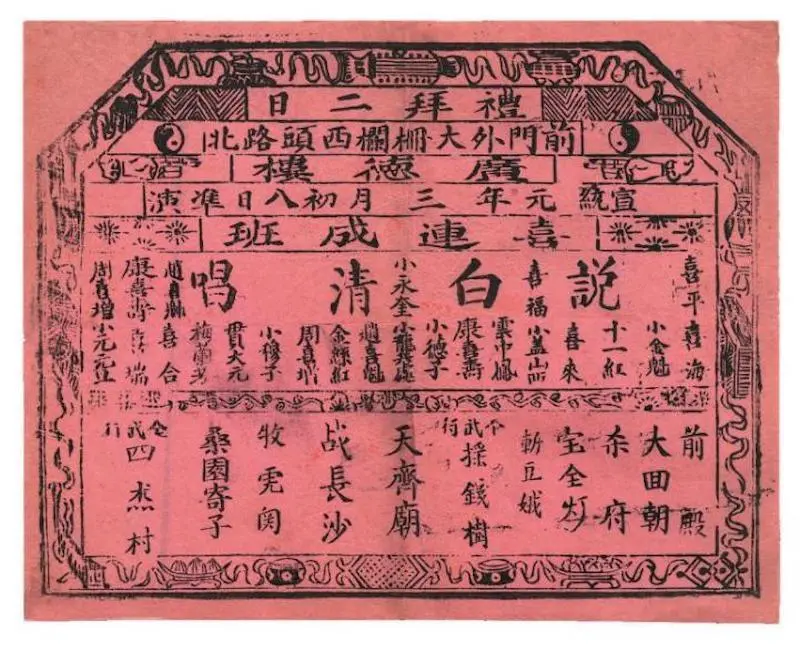 禮拜二日
前門外大柵欄西頭路北
廣德樓
宣統元年三月初八日准演
喜連成班
說白清唱
喜平喜海
小金魁
十一紅
喜來
喜福
雲中鳳
康喜壽
小德子
小永奎
趙喜魁
金絲紅
周喜增
小穆子
貫大元
梅蘭芳
喜合
康喜壽喜瑞
周喜增小元元旦
前殿
大回朝
杀府
宝全灯
斬豆娥
武行採錢樹
天齊廟
战長沙
牧虎関
桑園寄子
全武行四杰村